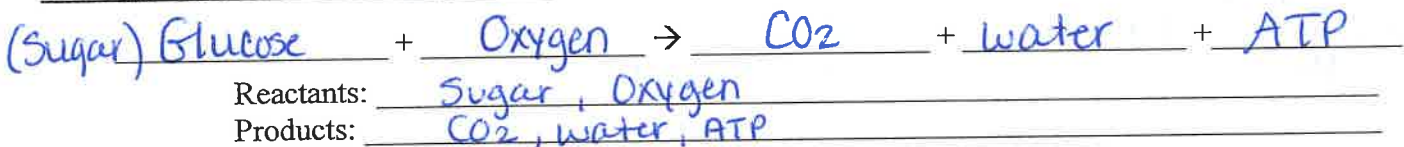 (Sugar) Glucose + Oxygen → CO2 + water + ATP
Reactants: Sugar, Oxygen
Products: CO2, water, ATP